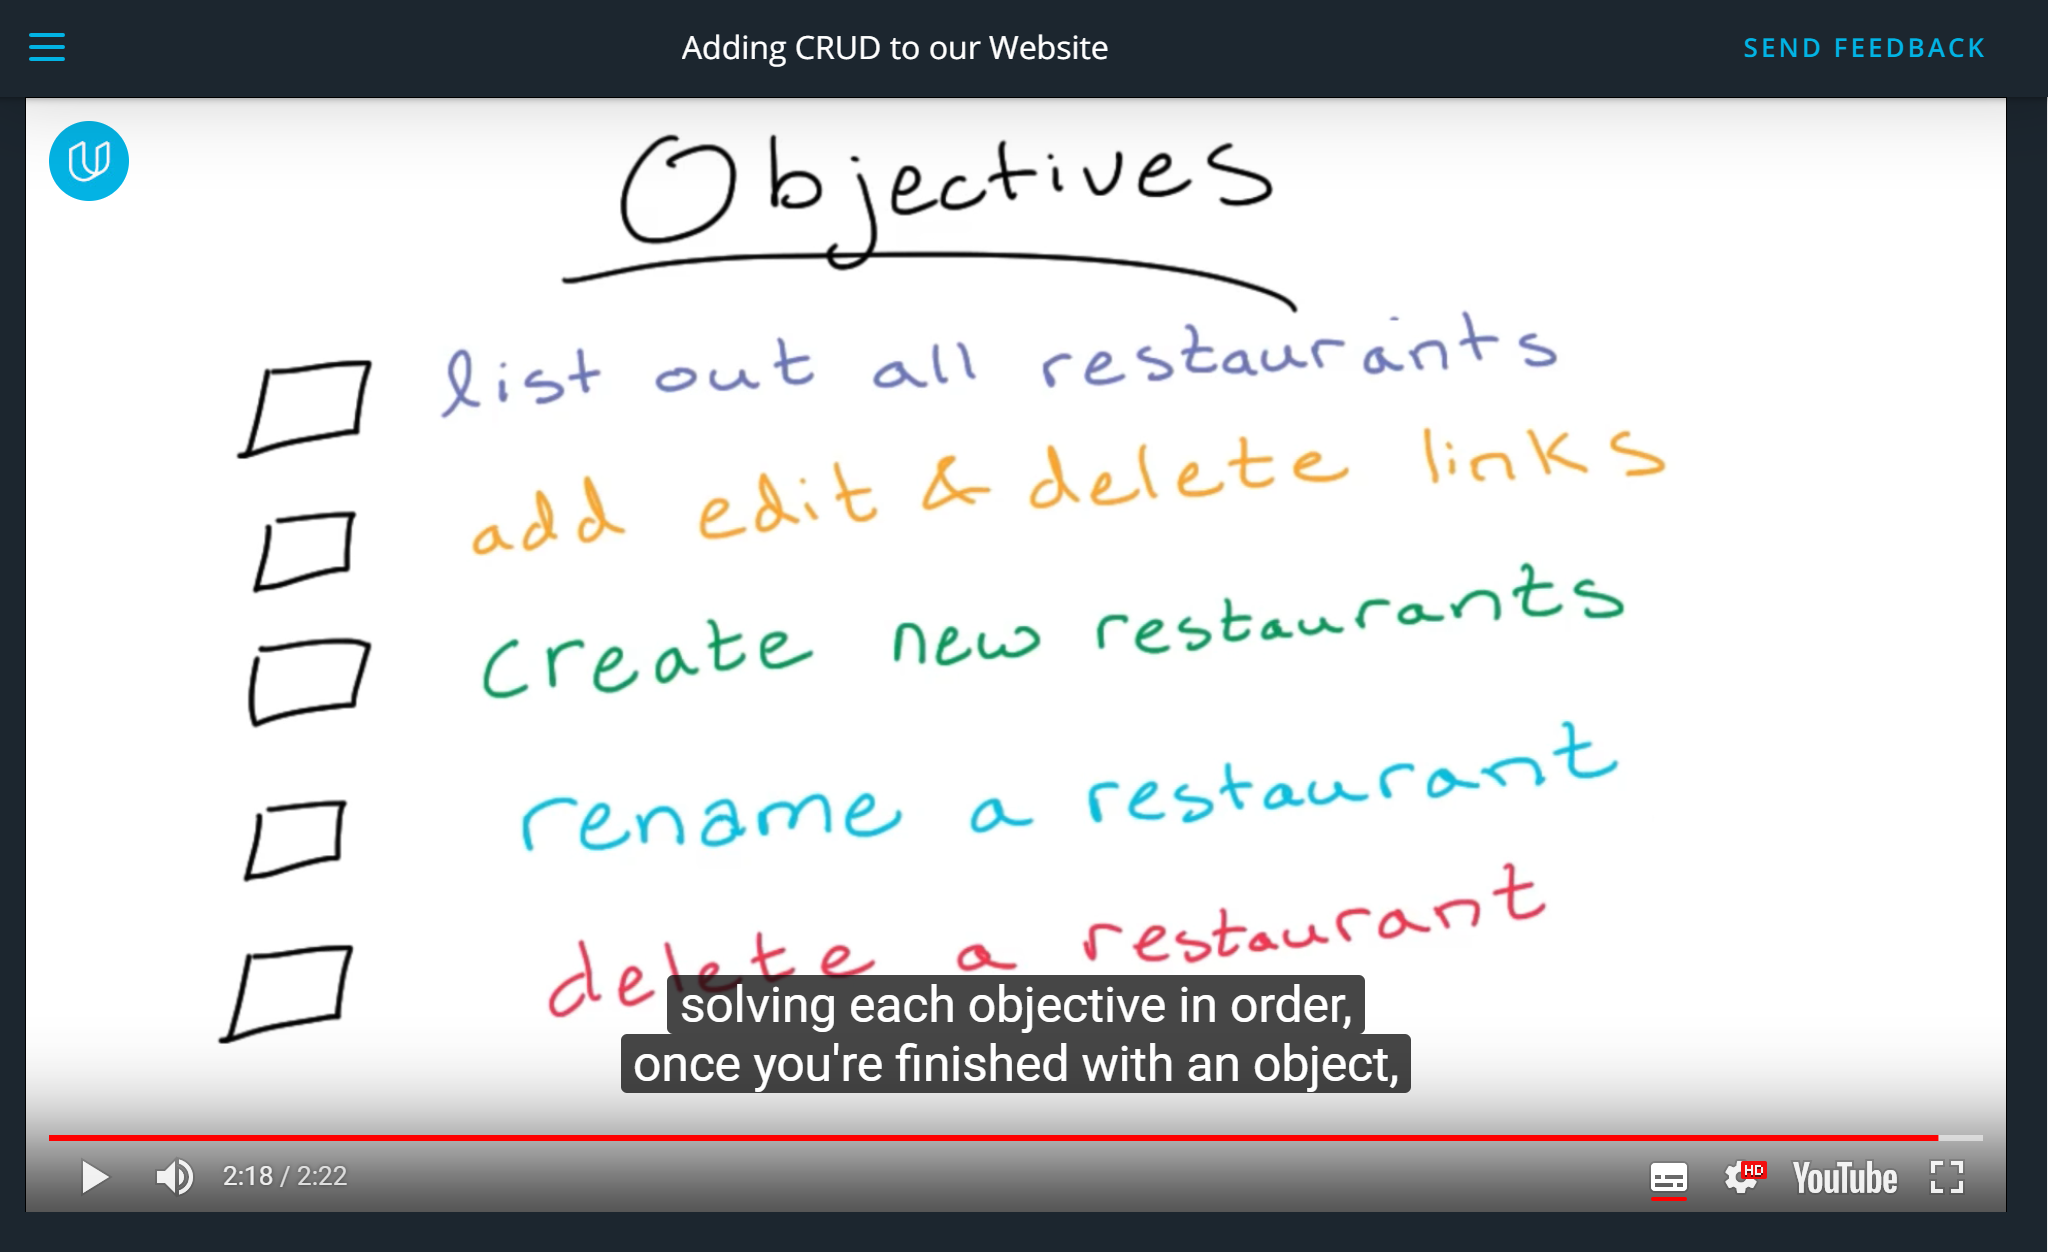 Adding CRUD to our Website
SEND FEEDBACK
Objectives
list out all restaurants
add edit & delete links
Create new restaurants
rename a restaurant
delete a restaurant
solving each objective in order,
once you're finished with an object,
2:18 / 2:22
HD
YouTube